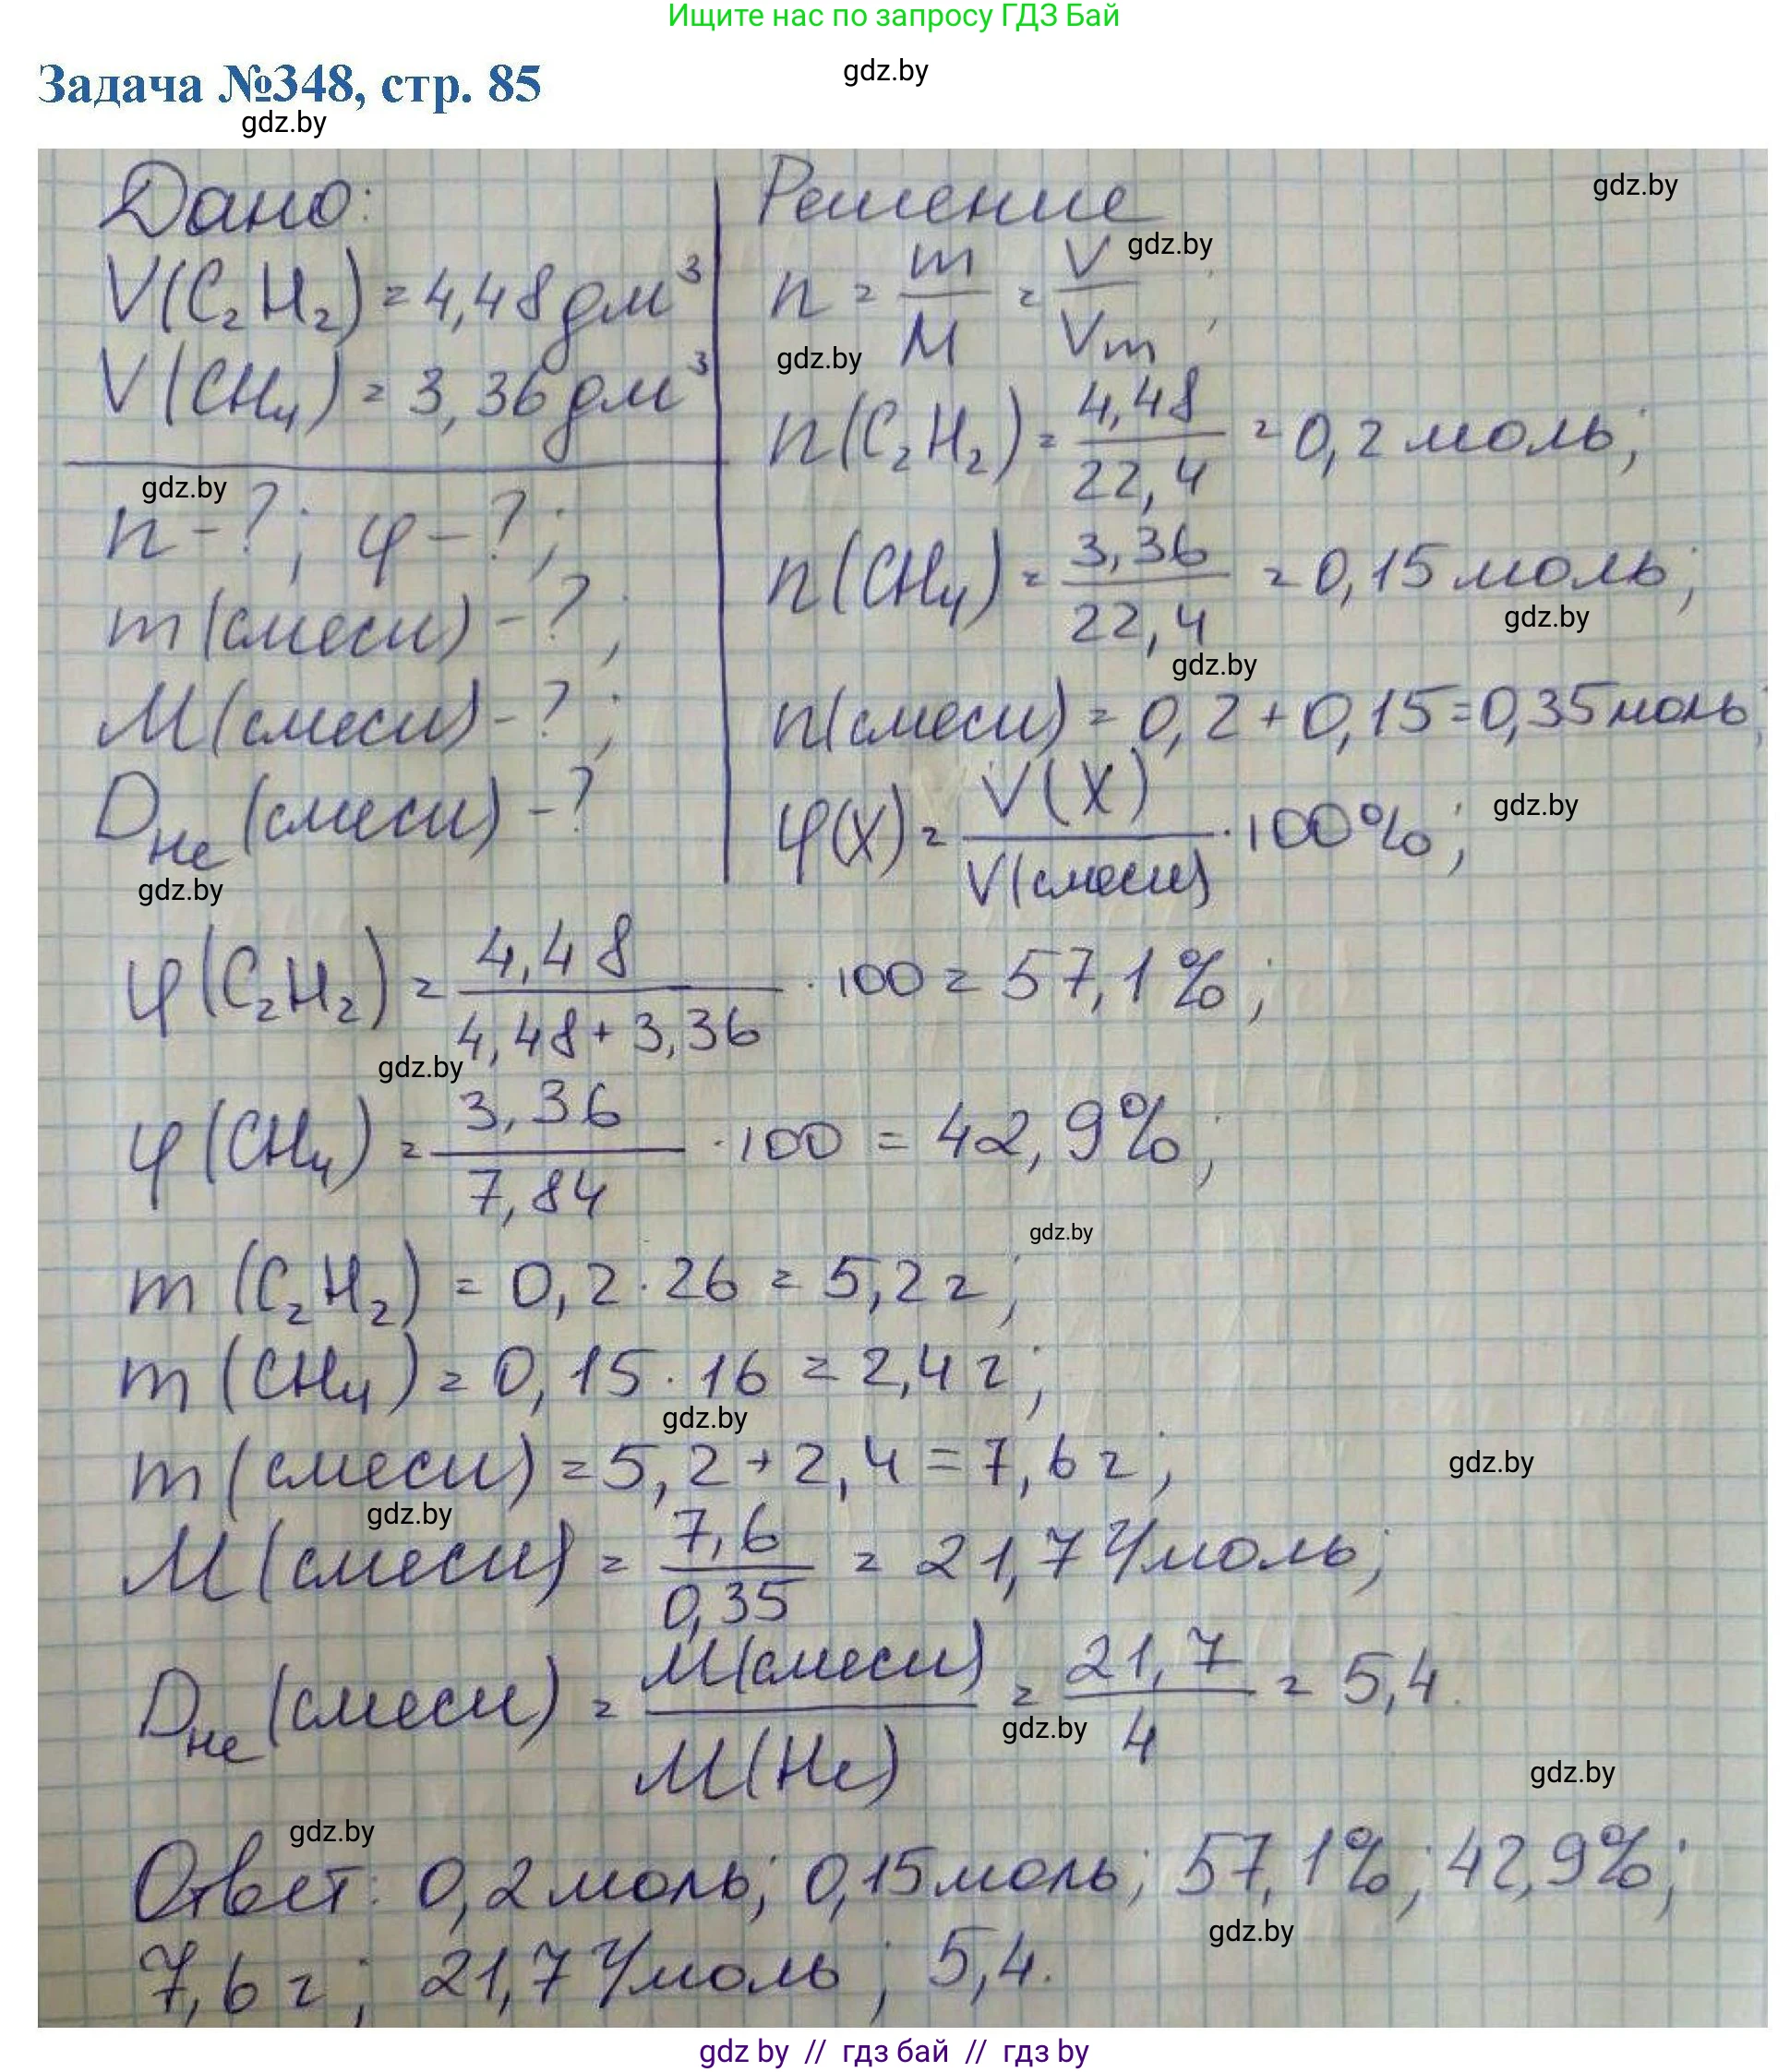 Ищите нас по запросу ГДЗ Бай
gdz.by
Задача №348, стр. 85
gdz.by
Дано:
V(C₂H₂) = 4,48 дм³
V(CH₄) = 3,36 дм³
gdz.by
n - ?; φ - ?;
m(смеси) - ?;
M(смеси) - ?;
D_He (смеси) - ?
gdz.by
Решение
gdz.by
gdz.by
n = m/M = V/Vm;
gdz.by
n(C₂H₂) = 4,48/22,4 = 0,2 моль;
n(CH₄) = 3,36/22,4 = 0,15 моль;
gdz.by
gdz.by
n(смеси) = 0,2 + 0,15 = 0,35 моль;
φ(X) = V(X)/V(смеси) · 100%;
gdz.by
φ(C₂H₂) = 4,48/4,48 + 3,36 · 100 = 57,1%;
gdz.by
φ(CH₄) = 3,36/7,84 · 100 = 42,9%;
gdz.by
m(C₂H₂) = 0,2 · 26 = 5,2 г;
m(CH₄) = 0,15 · 16 = 2,4 г;
gdz.by
m(смеси) = 5,2 + 2,4 = 7,6 г;
gdz.by
gdz.by
M(смеси) = 7,6/0,35 = 21,7 г/моль;
D_He (смеси) = M(смеси)/M(He) = 21,7/4 = 5,4.
gdz.by
gdz.by
gdz.by
Ответ: 0,2 моль; 0,15 моль; 57,1%; 42,9%;
gdz.by
7,6 г; 21,7 г/моль; 5,4.
gdz by // гдз бай // гдз by